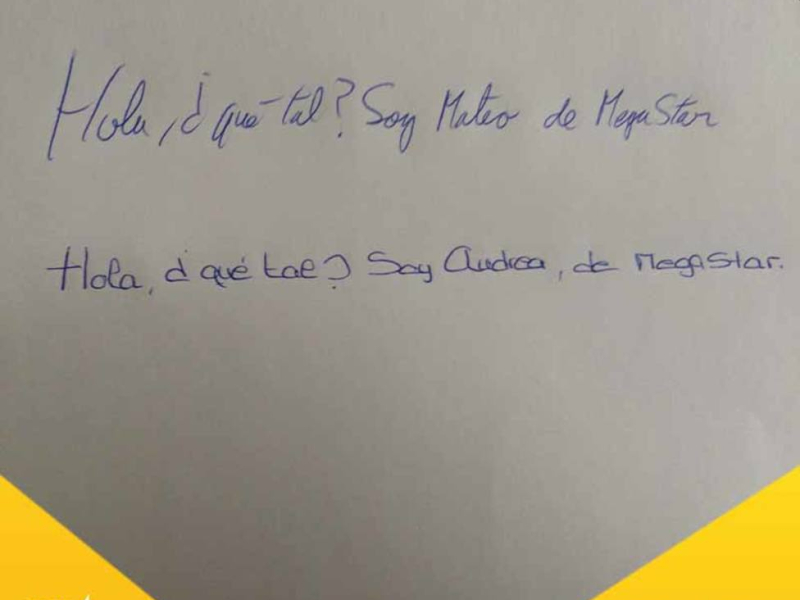 Hola, ¿qué tal? Soy Mateo de MegaStar
Hola, ¿qué tal? Soy Andrea, de MegaStar.